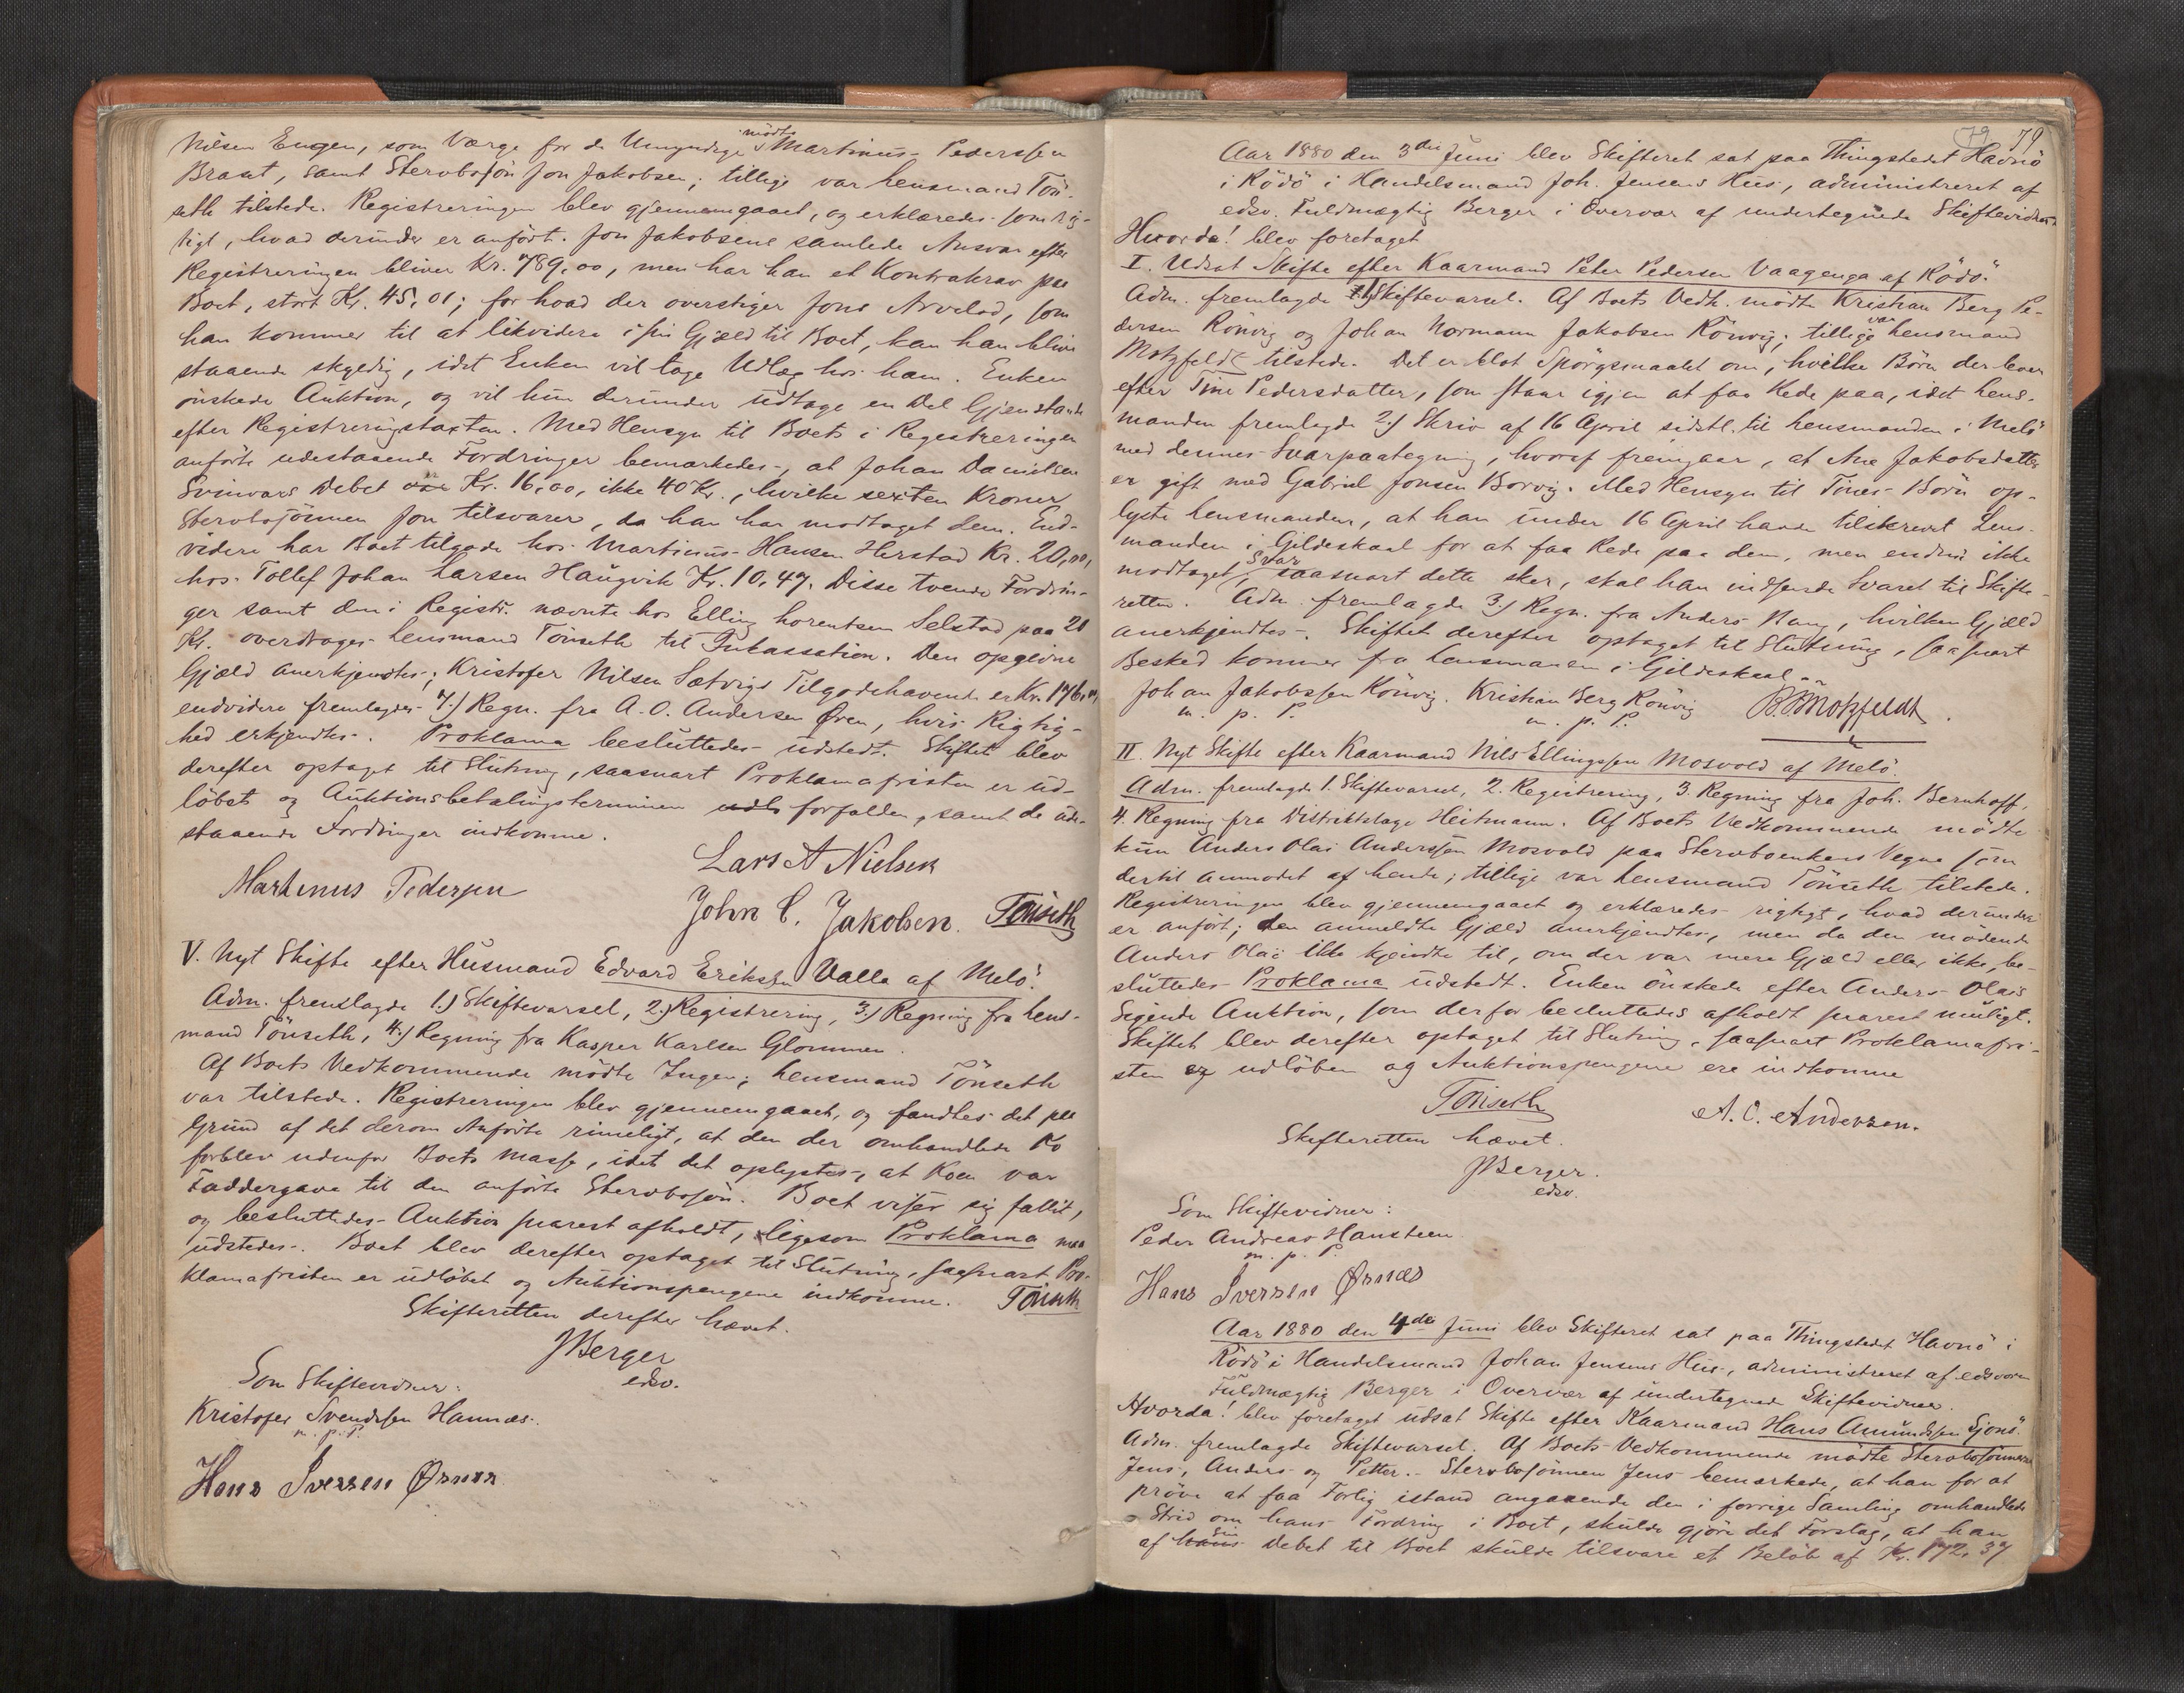 Nilsen Engen, som Værge for de Umyndige mødte Martinus Pedersen
Brasæt, samt Stervbosøn Jon Jakobsen; tillige var Lensmand Tön-
seth tilstede. Registreringen blev gjennemgaaet, og erklæredes som rig-
tigt, hvad derunder er anført. Jon Jakobsens samlede Ansvar efter
Registreringen bliver Kr. 789,00, men har han et Kontrakrav paa
Boet, stort Kr. 45,01; for hvad der overstiger Jons Arvelod, som
han kommer til at likvidere i sin Gjæld til Boet, kan han blive
staaende skyldig, idet Enken vil tage Udlæg hos ham. Enken
ønskede Auktion, og vil hun derunder udtage en Del Gjenstande
efter Registreringstaxten. Med Hensyn til Boets i Registreringen
anførte udestaaende Fordringer bemærkedes, at Johan Danielsen
Svinvær Debet er Kr. 16,00, ikke 40 Kr., hvilke sexten Kroner
Stervbosønnen Jon tilsvarer, da han har modtaget dem. End-
videre har Boet tilgode hos Martinus Hansen Herstad Kr. 20,00,
hos Tollef Johan Larsen Haugvik Kr. 10,47. Disse tvende Fordrin-
ger samt den i Registr. nævnte hos Elling Lorentsen Selstad paa 20
Kr. overdroges Lensmand Tönseth til Inkassation. Den opgivne
Gjæld anerkjendtes; Kristofer Nilsen Sætvigs Tilgodehavende er Kr. 176,00,
endvidere fremlagdes 7.) Regn. fra A. O. Andersen Øren, hvis Rigtig-
hed erkjendtes. Proklama besluttedes udstedt. Skiftet blev
derefter optaget til Slutning, saasnart Proklamafristen er ud-
løbet og Auktionsbetalingsterminen udlø forfalden, samt de ude-
staaende Fordringer indkomne.
Lars A Nielsen
Martinus Pedersen
John C. Jakobsen. Tönseth
V. Nyt Skifte efter Husmand Edvard Eriksen Valla af Melö.
Adm. fremlagde 1.) Skiftevarsel, 2.) Registrering, 3.) Regning fra Lens-
mand Tönseth, 4.) Regning fra Kasper Karlsen Glommen.
Af Boets Vedkommende mødte Ingen; Lensmand Tönseth
var tilstede. Registreringen blev gjennemgaaet, og fandtes det paa
Grund af det derom Anførte rimeligt, at den der omhandlede Ko
forblev udenfor Boets Masse, idet det oplystes, at Koen var
Faddergave til den anførte Stervbosøn. Boet viser sig fallit,
og besluttedes Auktion snarest afholdt, ligesom Proklama maa
udstedes. Boet blev derefter optaget til Slutning, saasnart Pro-
klamafristen er udløbet og Auktionspengene indkomne. Tönseth
Skifteretten derefter hævet.
JBerger
edsv.
Som Skiftevidner:
Kristofer Svendsen Hannæs.
m. p. P.
Hans Iversen Ørnes
79 79
Aar 1880 den 3die Juni blev Skifteret sat paa Thingstedet Havnö
i Rödö i Handelsmand Joh. Jensens Hus, administreret af
edsv. Fuldmægtig Berger i Overvær af undertegnede Skiftevidner
Hvorda! blev foretaget
I. Udsat Skifte efter Kaarmand Peter Pedersen Vaagenga af Rödö.
Adm. fremlagde 1.) Skiftevarsel. Af Boets Vedk. mødte Kristian Berg Pe-
dersen Rönvig og Johan Normann Jakobsen Rönvig; tillige var Lensmand
Motzfeldt tilstede. Det er blot Spørgsmaalet om, hvilke Børn der lever
efter Tine Pedersdatter, som staar igjen at faa Rede paa, idet Lens-
manden fremlagde 2.) Skriv af 16 April sidstl. til Lensmanden i Melö
med dennes Svarpaategning, hvoraf fremgaar, at Ane Jakobsdatter
er gift med Gabriel Jonsen Borvig. Med Hensyn til Tines Børn op-
lyste Lensmanden, at han under 16 April havde tilskrevet Lens-
manden i Gildeskaal for at faa Rede paa dem, men endnu ikke
modtaget Svar, saasnart dette sker, skal han indsende Svaret til Skifte-
retten. Adm. fremlagde 3.) Regn. fra Anders Nang, hvilken Gjæld
anerkjendtes. Skiftet derefter optaget til Slutning, saasnart
Besked kommer fra Lensmanden i Gildeskaal.
Johan Jakobssen Rönvig. Kristian Berg Rönvig
m. p. P. m. p. P.
Motzfeldt.
II. Nyt Skifte efter Kaarmand Nils Ellingsen Mosvold af Melö.
Adm. fremlagde 1. Skiftevarsel, 2. Registrering, 3. Regning fra Joh. Bernhoff,
4. Regning fra Distriktslæge Heitmann. Af Boets Vedkommende mødte
kun Anders Olai Anderssen Mosvold paa Stervboenkens Vegne som
dertil anmodet af hende; tillige var Lensmand Tönseth tilstede.
Registreringen blev gjennemgaaet og erklæredes rigtigt, hvad derunder
er anført; den anmeldte Gjæld anerkjendtes, men da den mødende
Anders Olai ikke kjendte til, om der var mere Gjæld eller ikke, be-
sluttedes Proklama udstedt. Enken ønskede efter Anders Olais
Sigende Auktion, som derfor besluttedes afholdt snarest muligt.
Skiftet blev derefter optaget til Slutning, saasnart Proklamafri-
sten er udløben og Auktionspengene ere indkomne
Tönseth A. O. Andersen.
Skifteretten hævet.
JBerger.
edsv.
Som Skiftevidner:
Peder Andreas Hansteen
m. p. P.
Hans Iversen Ørnes
Aar 1880 den 4de Juni blev Skifteret sat paa Thingstedet Havnö i
Rödö i Handelsmand Johan Jensens Hus, administreret af edsvoren
Fuldmægtig Berger i Overvær af undertegnede Skiftevidner.
Hvorda! blev foretaget udsat Skifte efter Kaarmand Hans Amundsen Gjonö.
Adm. fremlagde Skiftevarsel. Af Boets Vedkommende mødte Stervbosønnerne
Jens, Anders og Petter. Stervbosønnen Jens bemærkede, at han for at
prøve at faa Forlig istand angaaende den i forrige Samling omhandlede
Strid om hans Fordring i Boet, skulde gjøre det Forslag, at han
af hans sin Debet til Boet skulde tilsvare et Beløb af Kr. 172,37